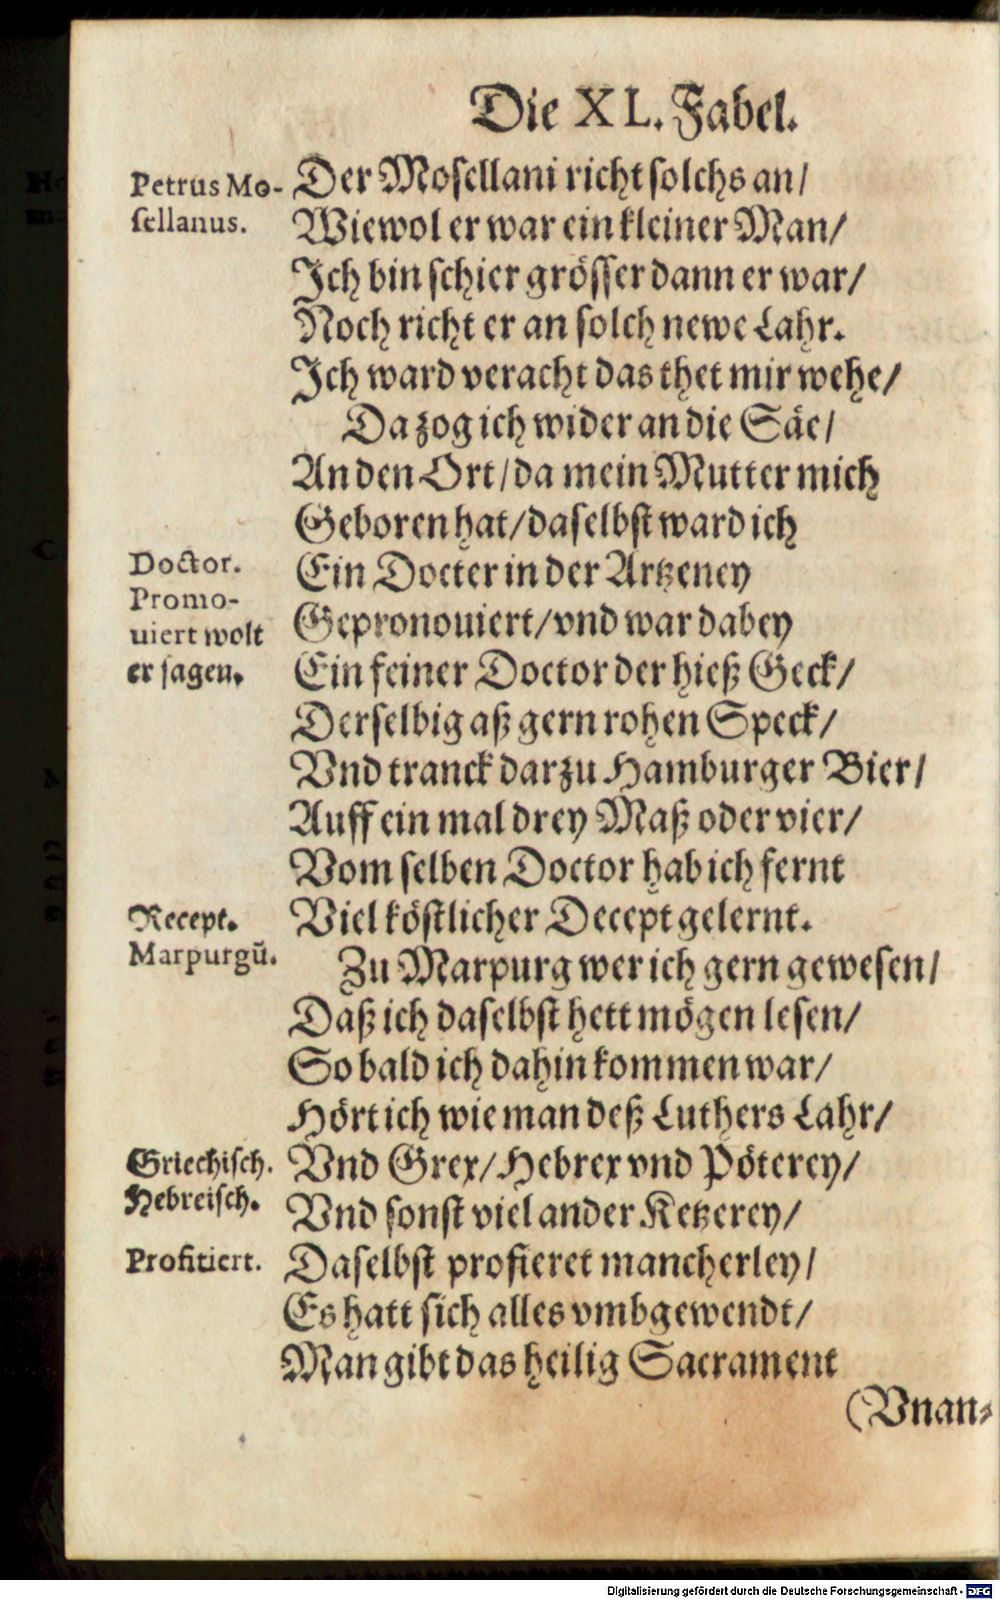 Die XL. Fabel.
Petrus Mo-
sellanus.
Der Mosellani richt solchs an/
Wiewol er war ein kleiner Man/
Ich bin schier grösser dann er war/
Noch richt er an solch newe Lahr.
Ich ward veracht das thet mir wehe/
Da zog ich wider an die Säe/
An den Ort/da mein Mutter mich
Geboren hat/daselbst ward ich
Doctor.
Promo-
uiert wolt
er sagen.
Ein Docter in der Artzeney
Gepronouiert/vnd war dabey
Ein feiner Doctor der hieß Geck/
Derselbig aß gern rohen Speck/
Vnd tranck darzu Hamburger Bier/
Auff ein mal drey Maß oder vier/
Vom selben Doctor hab ich fernt
Recept.
Viel köstlicher Decept gelernt.
Marpurgū.
Zu Marpurg wer ich gern gewesen/
Daß ich daselbst hett mögen lesen/
So bald ich dahin kommen war/
Hört ich wie man deß Luthers Lahr/
Griechisch.
Hebreisch.
Vnd Grex/Hebrex vnd Pöterey/
Vnd sonst viel ander Ketzerey/
Profitiert.
Daselbst profieret mancherley/
Es hatt sich alles vmbgewendt/
Man gibt das heilig Sacrament
(Vnan-
Digitalisierung gefördert durch die Deutsche Forschungsgemeinschaft - DFG